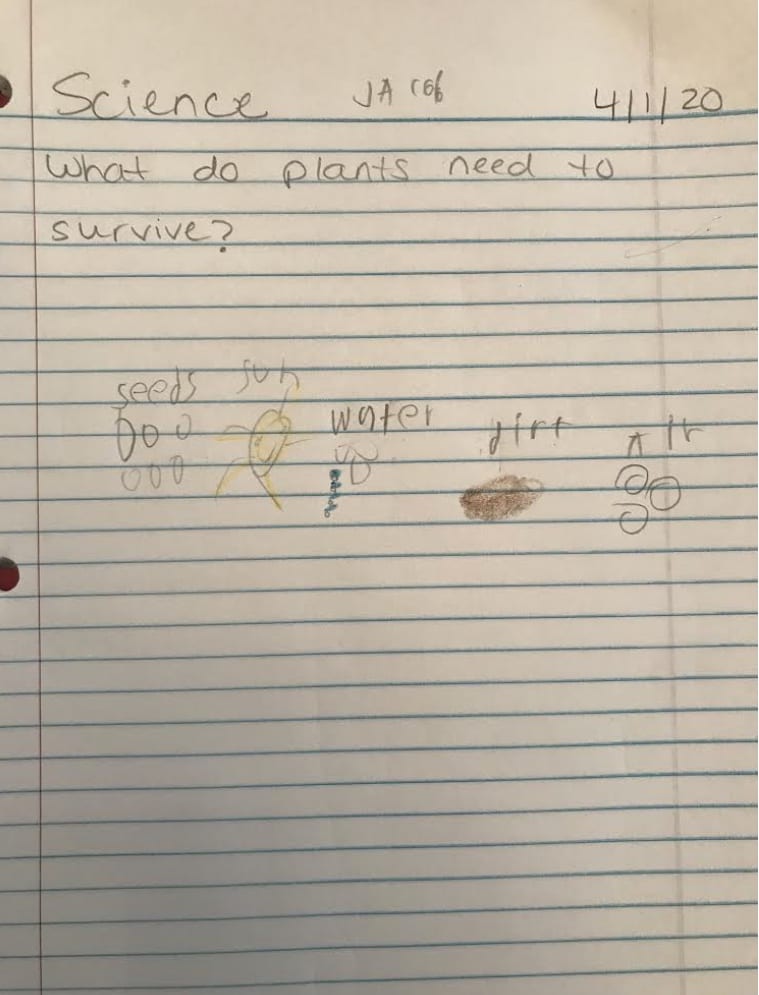 Science JAcob 4/1/20
What do plants need to
survive?
seeds sun water dirt Air